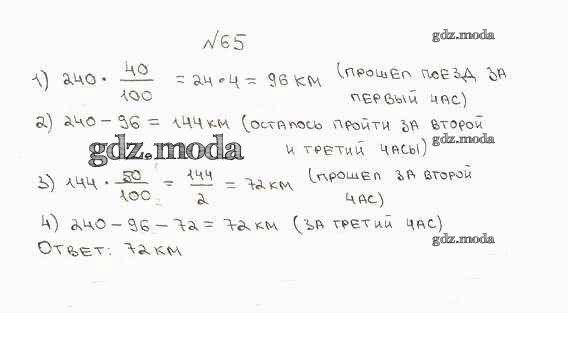 №65
gdz.moda
1) 240 · 40/100 = 24·4 = 96 км (прошел поезд за
первый час)
2) 240 – 96 = 144 км (осталось пройти за второй
и третий часы)
gdz.moda
gdz.moda
3) 144 · 50/100 = 144/2 = 72 км (прошел за второй
час)
4) 240 – 96 – 72 = 72 км (за третий час)
gdz.moda
Ответ: 72 км